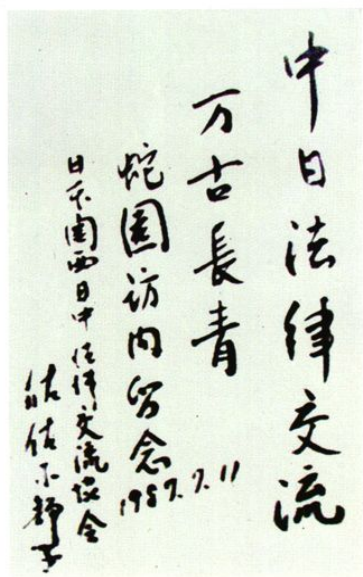 中日法律交流
万古長青
蛇園访问留念
1987.7.11
日本関西日中法律交流協会
佐佐木静子